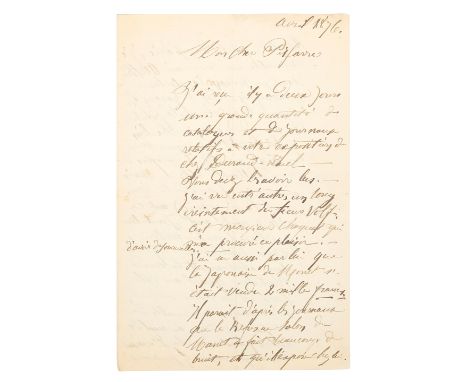 avril 1876.
Mon cher Pissarro
J'ai reçu il y a deux jours
une grande quantité de
catalogues et de journaux
relatifs à votre exposition de
chez Durand-Ruel —
Vous devez les avoir lus. —
J'ai vu entr'autres un long
éreintement du sieur Wolff
c'est monsieur Choquet qui
m'a procuré ce plaisir. —
J'ai su aussi par lui que
la Japonaise de Monet s'
était vendue 2 mille francs
Il parait d'après les journaux
que le Refus au Salon de
Manet a fait beaucoup de
bruit, et qu'il expose